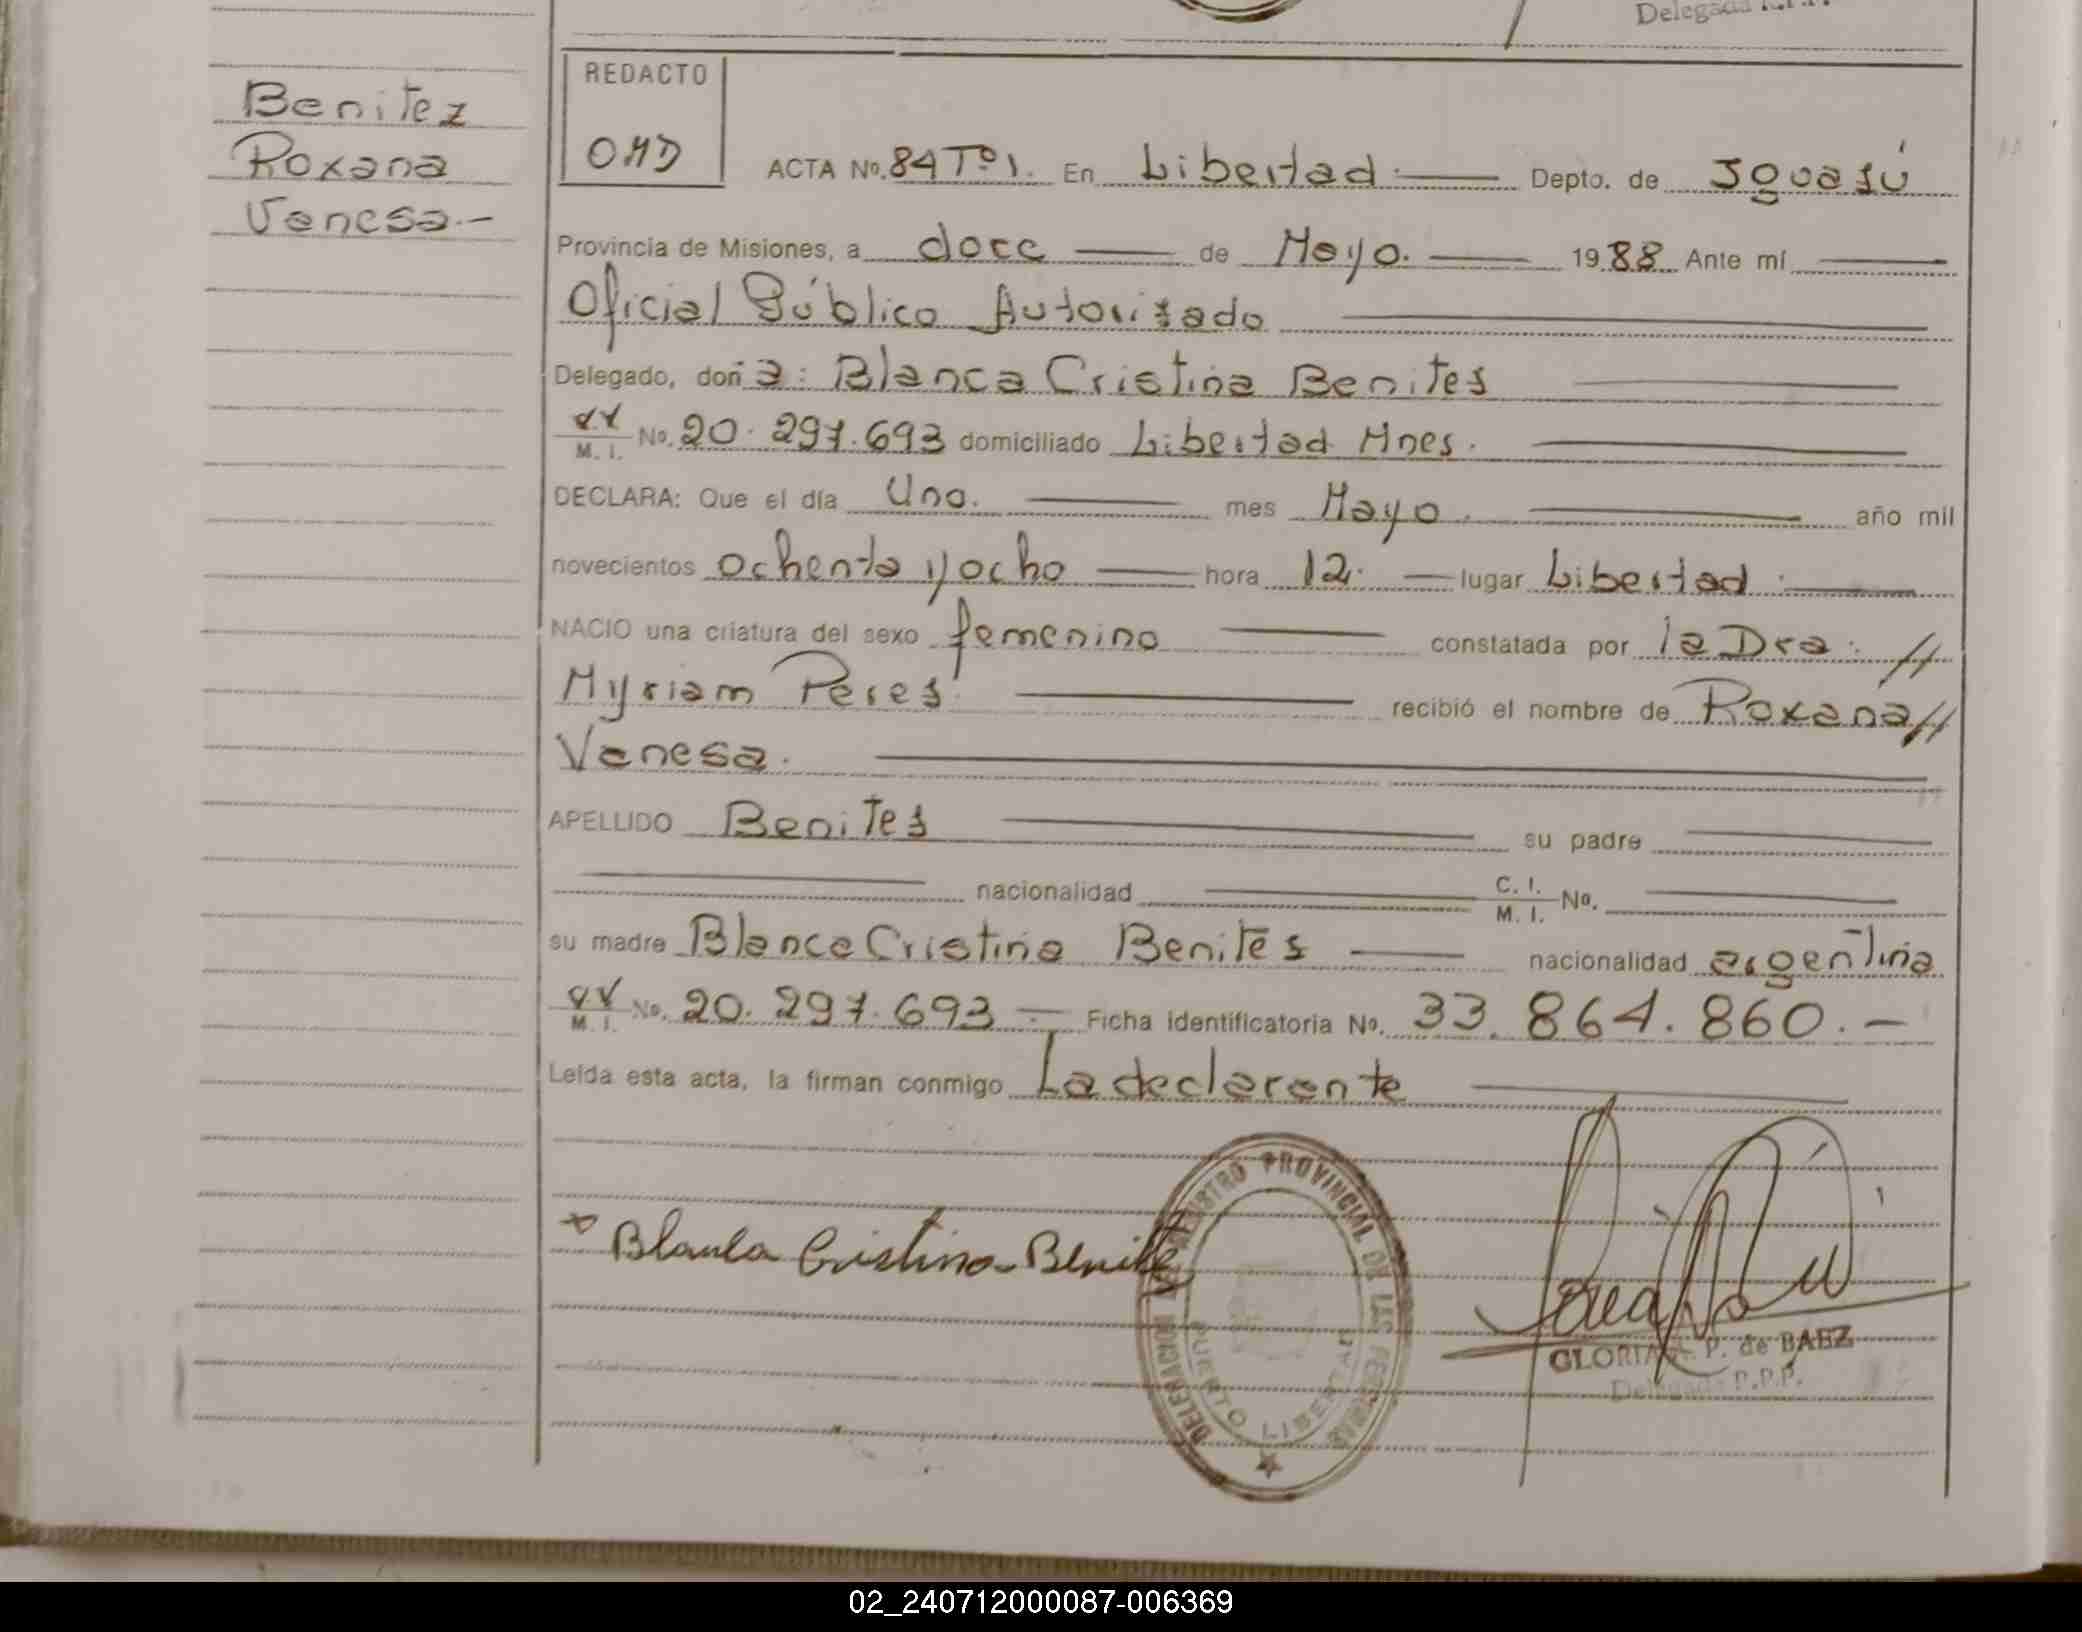 Delegada
Benitez
Roxana
Vanesa.-
REDACTO
OMD
ACTA No. 84 Tº 1. En Libertad. Depto. de Iguazú
Provincia de Misiones, a doce de Mayo. 1988 Ante mí
Oficial Público Autorizado
Delegado, doña: Blanca Cristina Benites
M. I. No. 20.297.693 domiciliado Libertad Mnes.
DECLARA: Que el día Uno. mes Mayo. año mil
novecientos ochenta y ocho hora 12. lugar Libertad.
NACIO una criatura del sexo femenino constatada por la Dra. //
Myriam Peres recibió el nombre de Roxana //
Vanesa.
APELLIDO Benites su padre
nacionalidad C. I. M. I. No.
su madre Blanca Cristina Benites nacionalidad argentina
M. I. No. 20.297.693 Ficha identificatoria No. 33.864.860.-
Leída esta acta, la firman conmigo La declarente
Blanca Cristina Benitez
REGISTRO PROVINCIAL DE LAS PERSONAS
DELEGACION
PUERTO LIBERTAD
GLORIA P. de BAEZ
Delegada R.P.P.
02_240712000087-006369